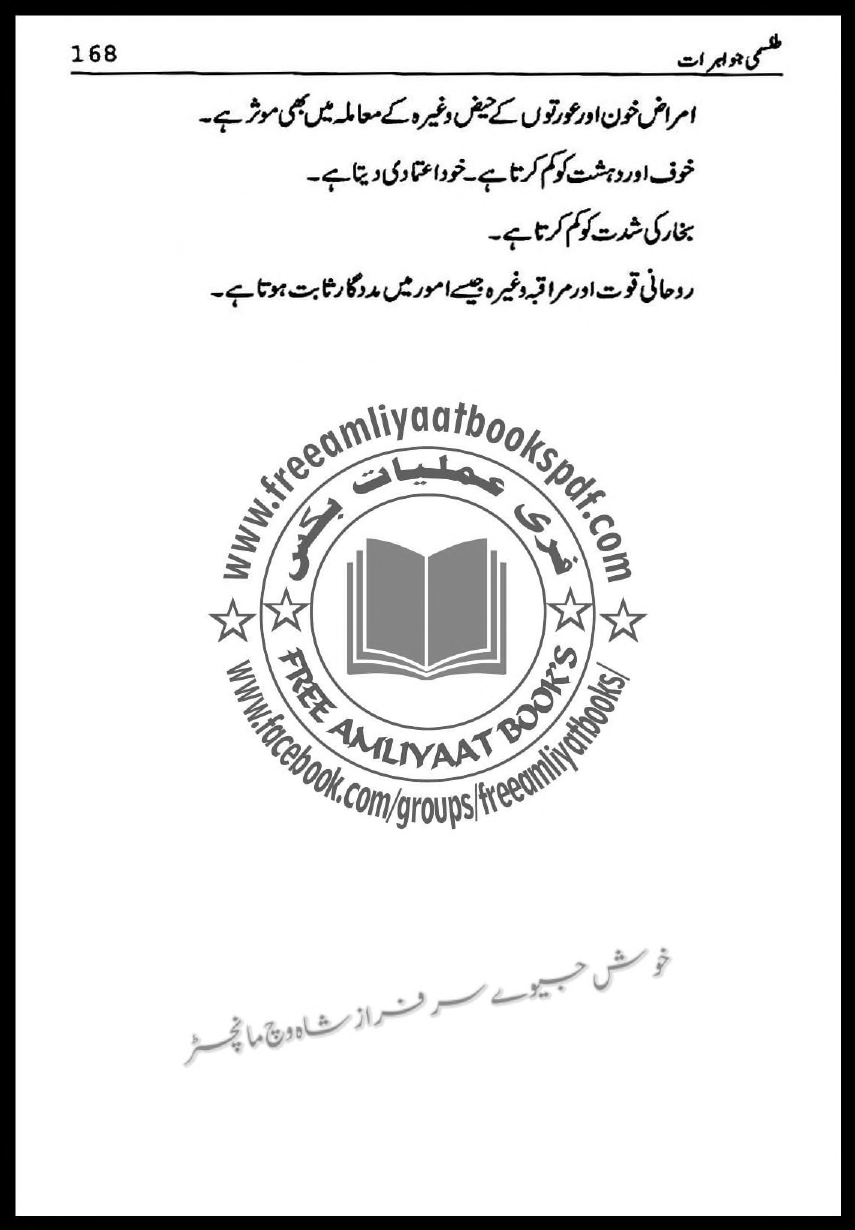 طلسمی جواہرات
168
امراض خون اور عورتوں کے حیض وغیرہ کے معاملہ میں بھی موثر ہے۔
خوف اور دہشت کو کم کرتا ہے۔ خود اعتمادی دیتا ہے۔
بخار کی شدت کو کم کرتا ہے۔
روحانی قوت اور مراقبہ وغیرہ جیسے امور میں مددگار ثابت ہوتا ہے۔
www.freeamliyaatbookspdf.com
فری عملیات بکس
FREE AMLIYAAT BOOK'S
www.facebook.com/groups/freeamliyatbooks/
خوش جیوے سرفراز شاہ وچ مانچسٹر